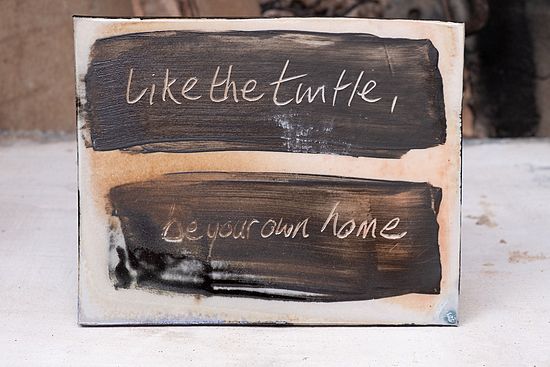 Like the turtle,
be your own home